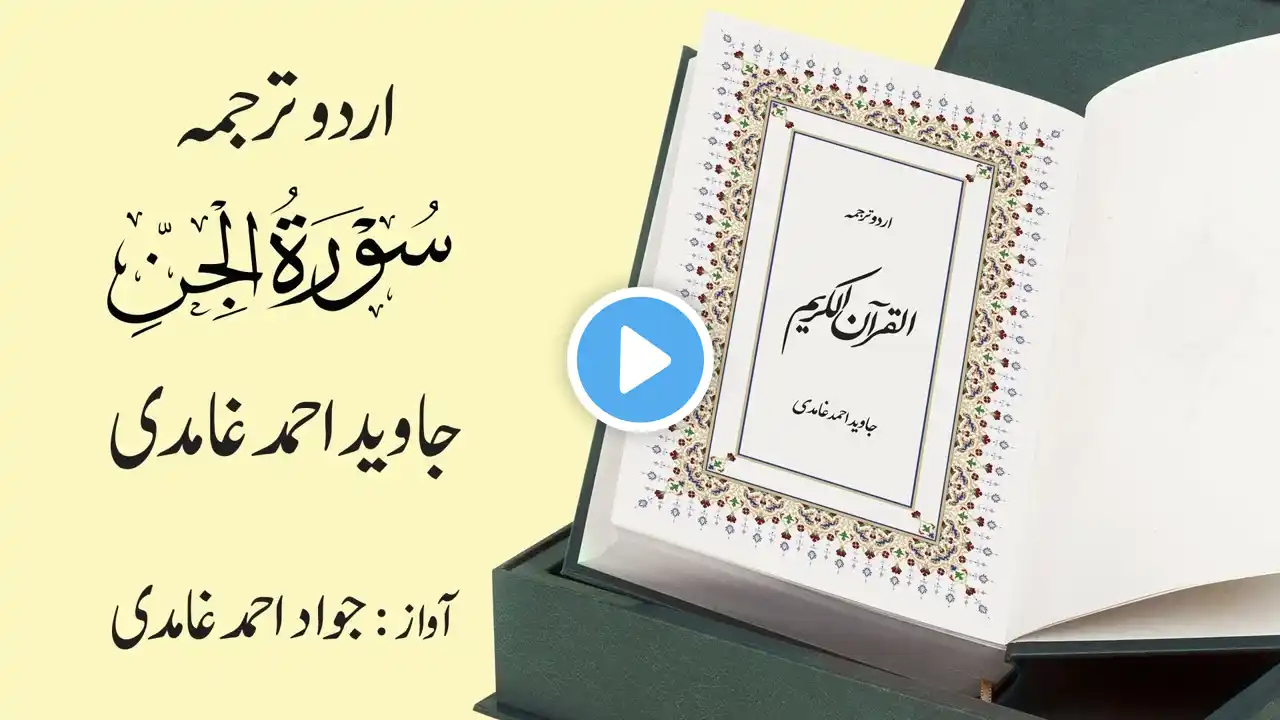 اردو ترجمہ
سُوْرَةُ الْجِنِّ
جاوید احمد غامدی
آواز : جواد احمد غامدی
اردو ترجمہ
القرآن الکریم
جاوید احمد غامدی